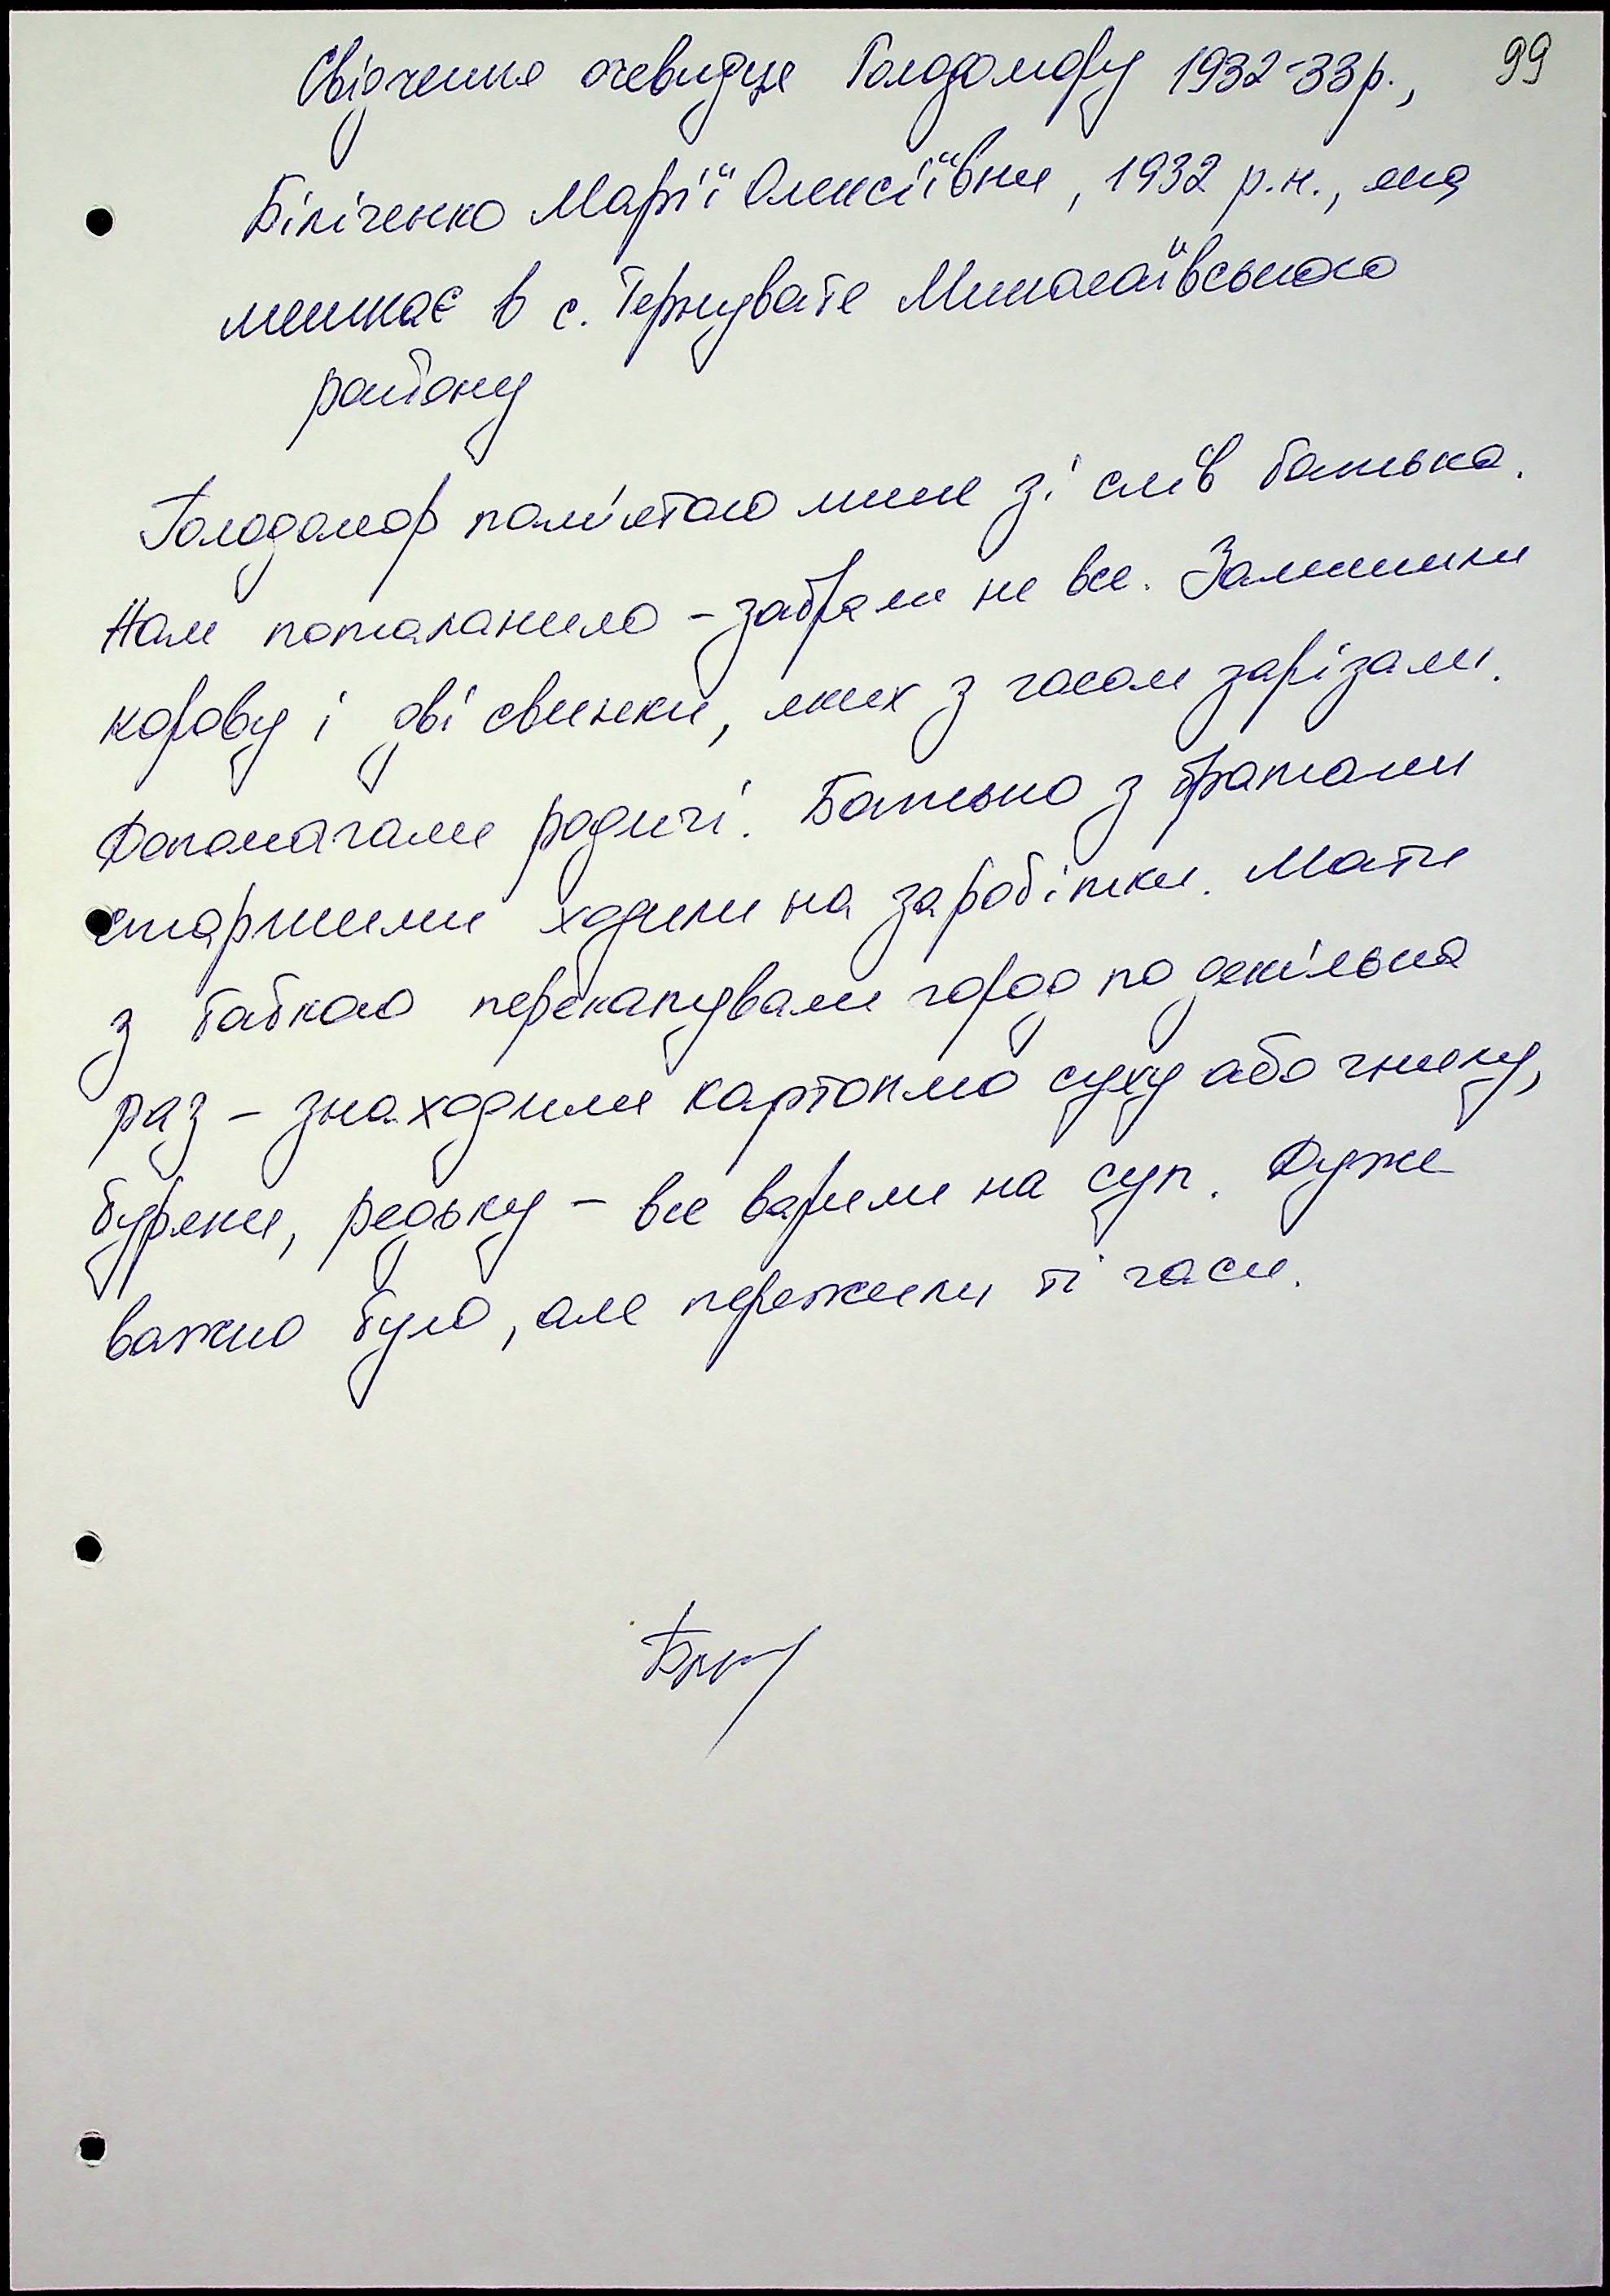 99
Свідчення очевидця Голодомору 1932-33р.,
Біліченко Марії Олексіївни, 1932 р.н., яка
мешкає в с. Тернувате Миколаївського
району
Голодомор пам'ятаю лише зі слів батька.
Нам поталанило - забрали не все. Залишили
корову і дві свинки, яких з часом зарізали.
Допомагали родичі. Батько з братами
старшими ходили на заробітки. Мати
з бабкою перекапували город по декілька
раз - знаходили картоплю суху або гнилу,
буряки, редьку - все варили на суп. Дуже
важко було, але пережили ті часи.